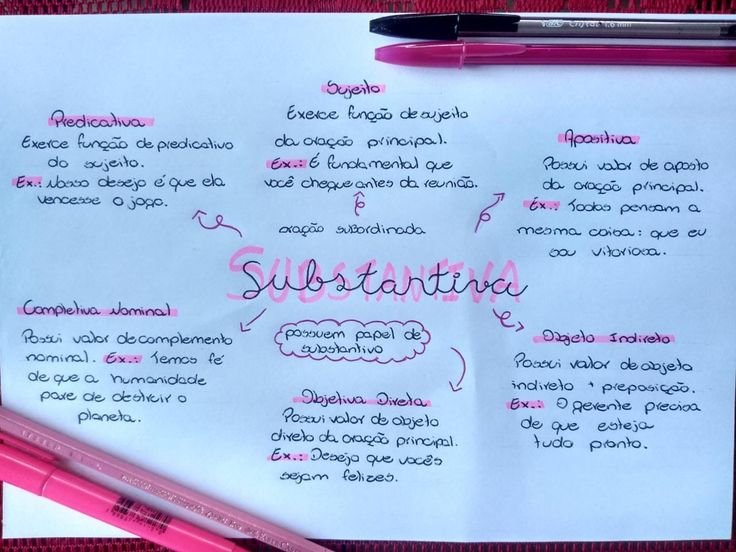 Sujeito
Exerce função de sujeito
da oração principal.
Ex.: É fundamental que
você chegue antes da reunião.
Predicativa
Exerce função de predicativo
do sujeito.
Ex.: Nosso desejo é que ela
vencesse o jogo.
Apositiva
Possui valor de aposto
da oração principal.
Ex.: Todos pensam a
mesma coisa: que eu
sou vitoriosa.
oração subordinada
SUBSTANTIVA
Substantiva
possuem papel de
substantivo
Completiva Nominal
Possui valor de complemento
nominal. Ex.: Temos fé
de que a humanidade
pare de destruir o
planeta.
Objetiva Direta
Possui valor de objeto
direto da oração principal.
Ex.: Desejo que vocês
sejam felizes.
Objeto Indireto
Possui valor de objeto
indireto + preposição.
Ex.: O gerente precisa
de que esteja
tudo pronto.